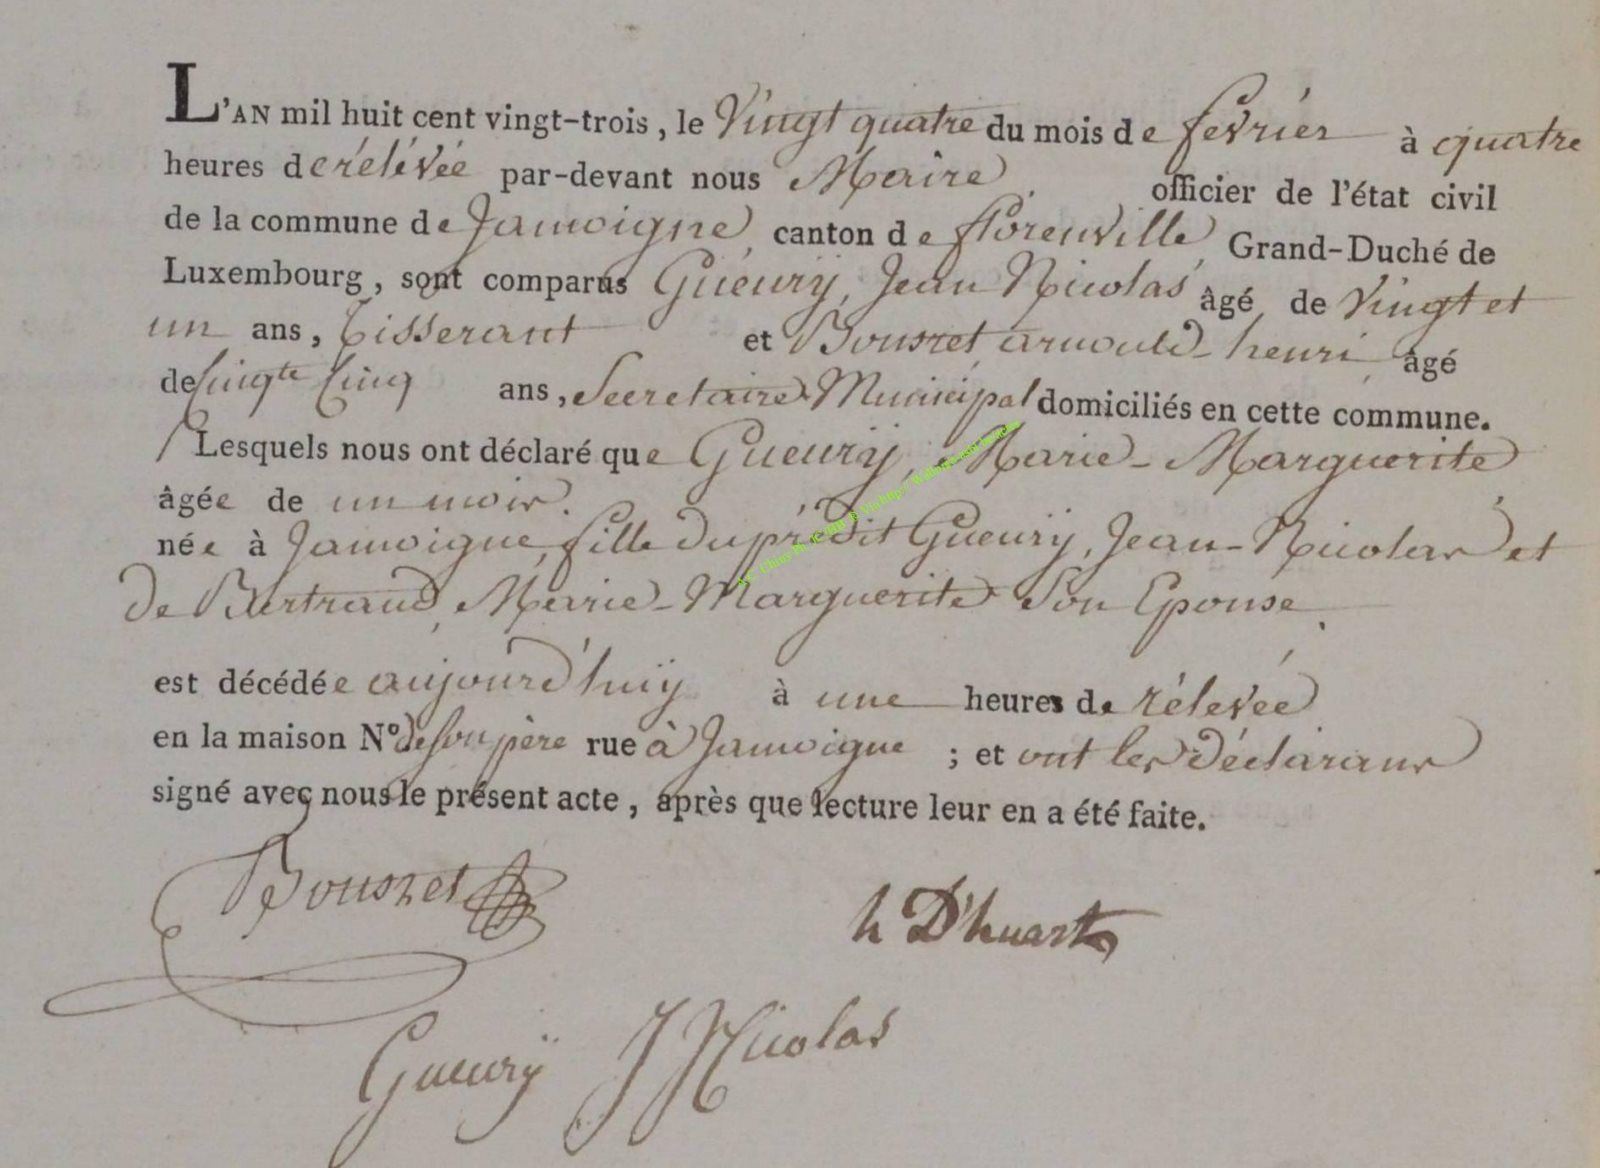 L'AN mil huit cent vingt-trois, le Vingt quatre du mois de fevrier à quatre
heures de rélévée par-devant nous Maire officier de l'état civil
de la commune de Jamoigne, canton de florenville Grand-Duché de
Luxembourg, sont comparus Gueury, Jean Nicolas âgé de Vingt et
un ans, Tisserant et Bousret, arnould-henri, âgé
de Cinqte Cinq ans, Secretaire Municipal domiciliés en cette commune.
Lesquels nous ont déclaré que Gueurÿ, Marie-Marguerite
âgée de un mois.
née à Jamoigne, fille du prédit Gueurÿ, Jean-Nicolas et
de Bertrand, Marie-Marguerite Son Epouse.
est décédée aujourd'huÿ à une heures de rélevée
en la maison N° de Son père rue à Jamoigne ; et ont les déclarans
signé avec nous le présent acte, après que lecture leur en a été faite.
Bousret
h D'huart
Gueurÿ J Nicolas